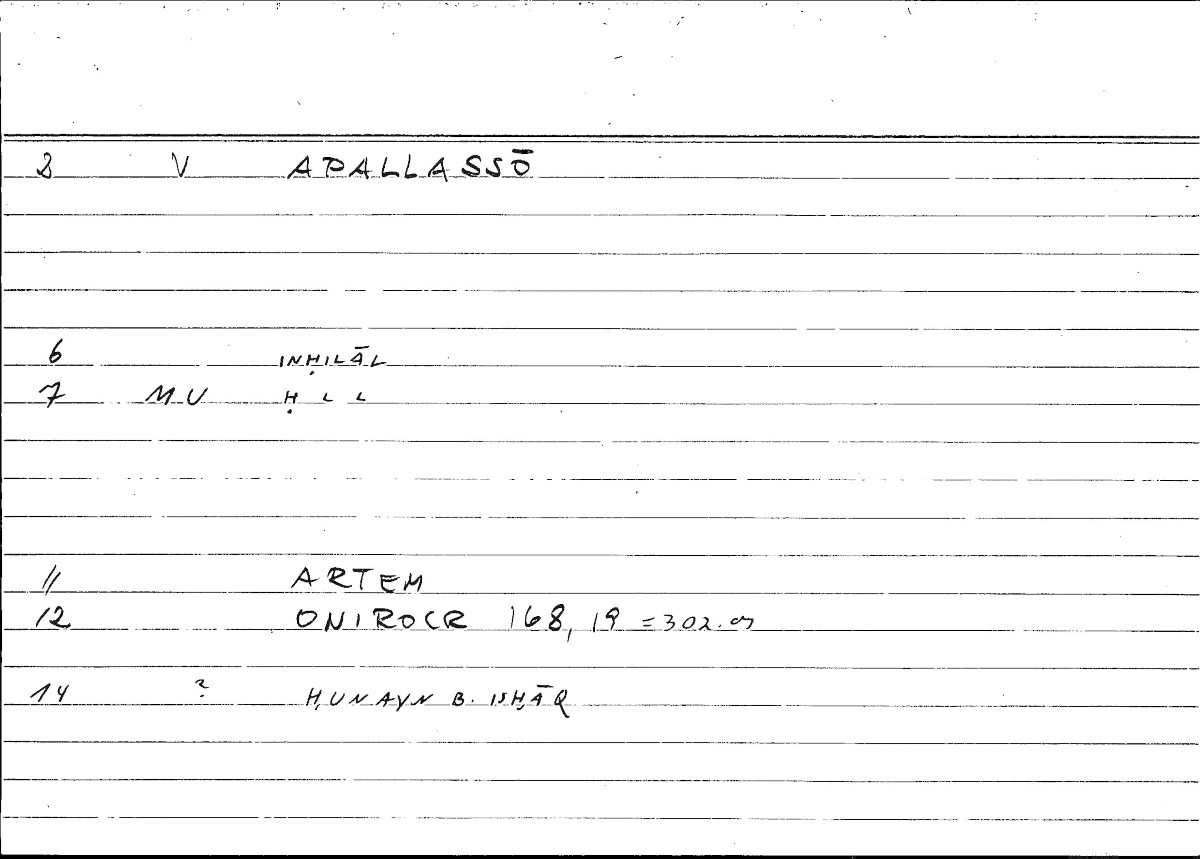 2 V APALLASSŌ
6 INḤILĀL
7 MU Ḥ L L
11 ARTEM
12 ONIROCR 168,19 =302.
14 ? ḤUNAYN B. ISḤĀQ